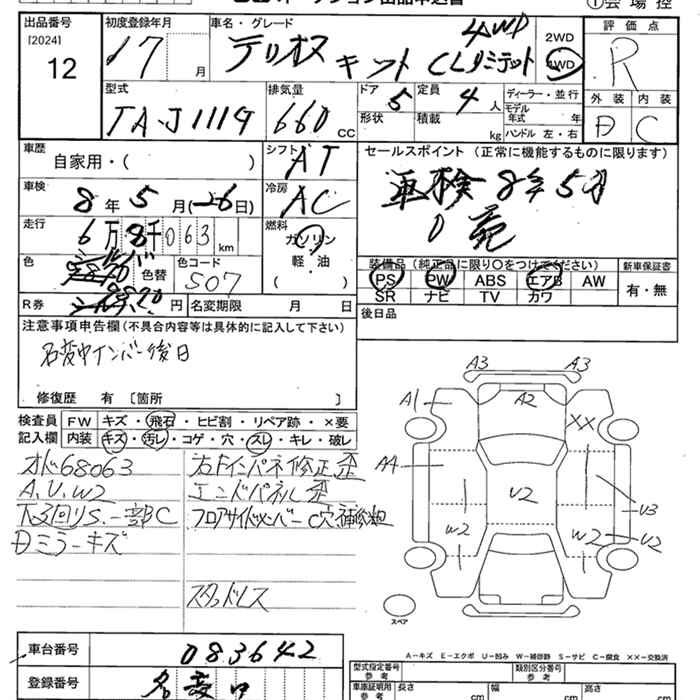 出品番号 [2024] 12
初度登録年月 17 月
車名・グレード テリオス キット CLリミテット 4WD
2WD 4WD
評価点 R
外装 内装
D C
型式 TA-J111G
排気量 660 CC
ドア 5 形状
定員 4 人 積載 kg
ディーラー・並行
モデル年式 年
ハンドル 左・右
車歴 自家用・( )
シフト AT
車検 8年5月(26日)
冷房 AC
走行 6万8千063 km
燃料 ガソリン 軽・油 ( )
色 シルバー 色替
色コード S07
R券 9820 円
名変期限 月 日
セールスポイント (正常に機能するものに限ります)
車検8年5月
装備品(純正品に限り○をつけてください)
PS PW ABS エアB AW
SR ナビ TV カワ
新車保証書 有・無
後日品
注意事項申告欄(不具合内容等は具体的に記入して下さい)
名変中ナンバー後日
修復歴 有 〔箇所 〕
検査員記入欄
FW キズ・飛石・ヒビ割・リペア跡・×要
内装 キズ・汚レ・コゲ・穴・スレ・キレ・破レ
オド68063
A、U、W2
下回りS、一部BC
Dミラーキズ
右Fインパネ修正歪
エンドパネル歪
フロアサイドメンバーC穴補修跡
スタッドレス
A3 A3
A1 A2 XX
A4 U2 U3
W2 W2 U2
スペア
A-キズ E-エクボ U-凹み W-補修跡 S-サビ C-腐食 XX-交換済
車台番号 083642
登録番号 名変中
型式指定番号 参考
類別区分番号 参考
車庫証明用 参考 長さ cm 幅 cm 高さ cm